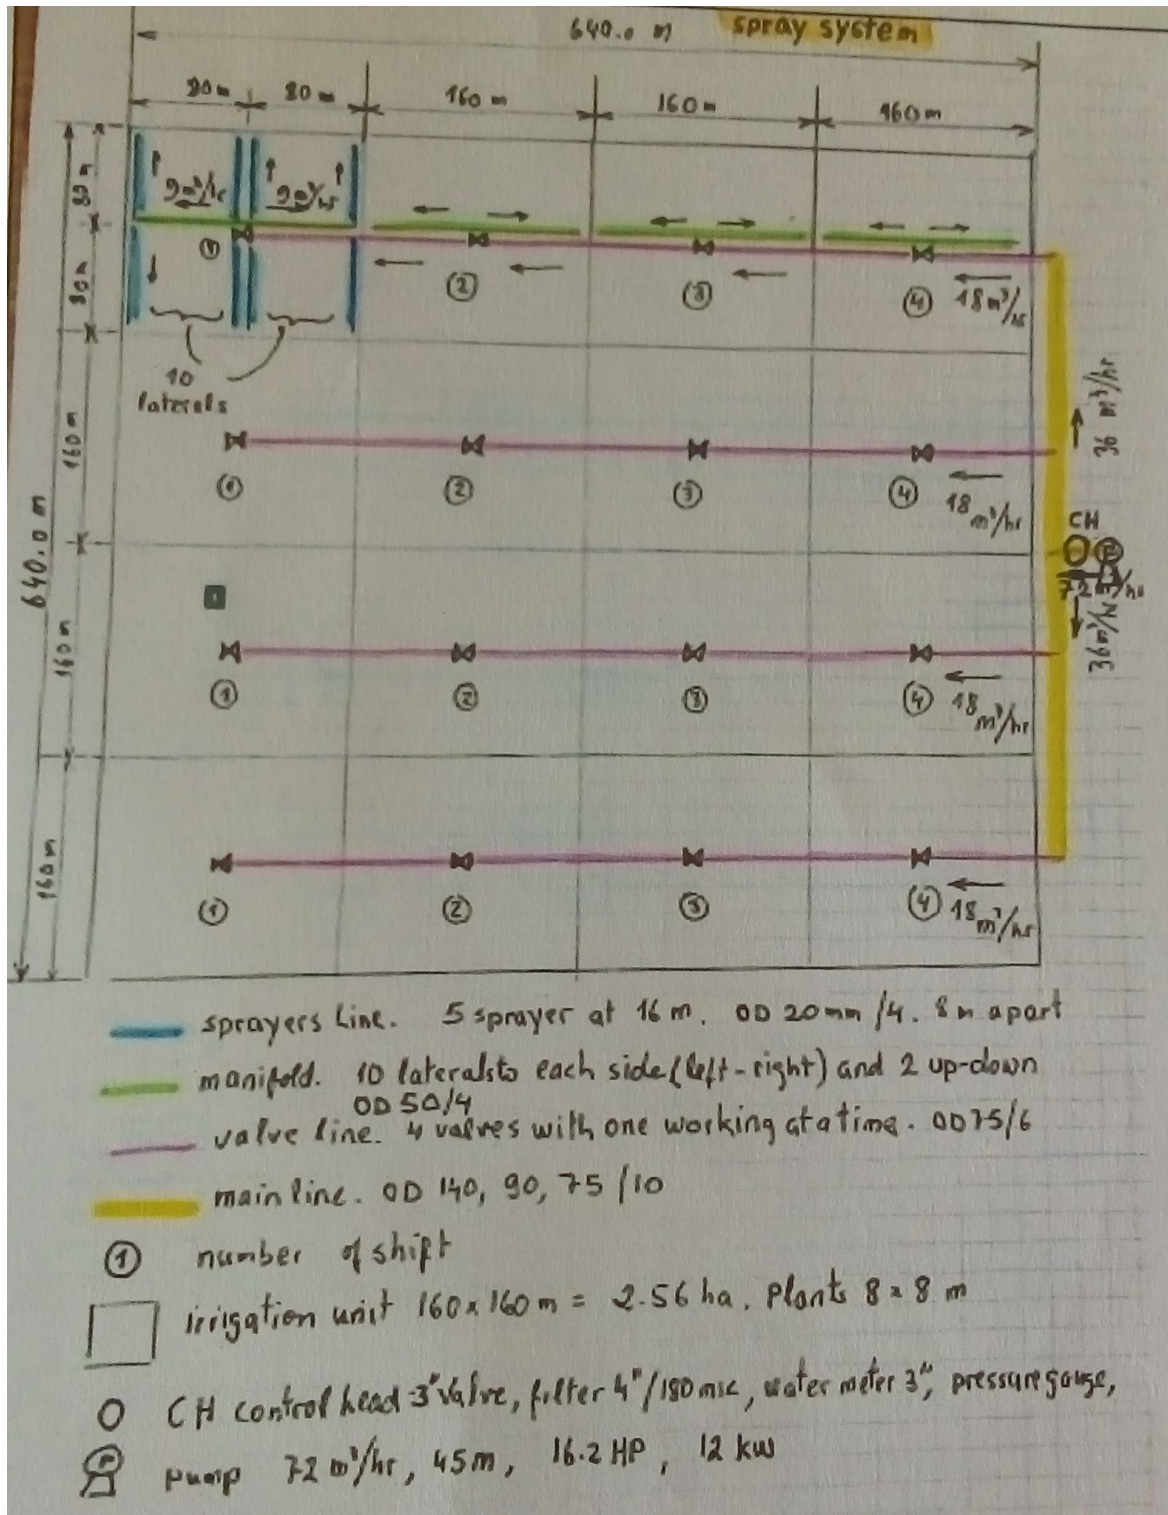 640.0 m spray system
80m 80m 160m 160m 160m
80m
9m³/hr 9m³/hr
80m
1 2 3 4 18m³/hr
10
laterals
36 m³/hr
160m
1 2 3 4 18 m³/hr
CH
P
72 m³/hr
640.0 m
160m
36 m³/hr
1 2 3 4 18 m³/hr
160m
1 2 3 4 18 m³/hr
sprayers Line. 5 sprayer at 16 m. OD 20mm/4. 8m apart
manifold. 10 laterals to each side (left-right) and 2 up-down
OD 50/4
valve line. 4 valves with one working at a time. OD75/6
main line. OD 140, 90, 75/10
1 number of shift
irrigation unit 160x160m = 2.56 ha. Plants 8x8 m
CH control head 3" valve, filter 4"/180mic, water meter 3", pressure gauge,
P pump 72 m³/hr, 45m, 16.2 HP, 12 kw